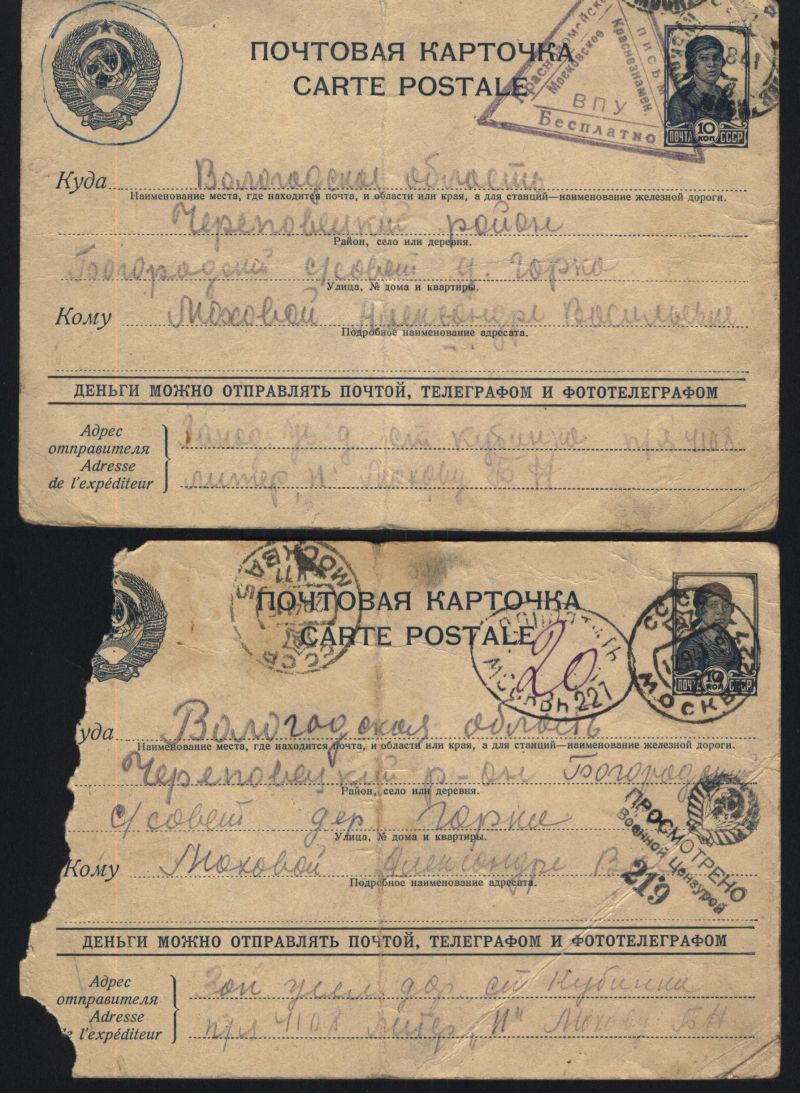 ПОЧТОВАЯ КАРТОЧКА
CARTE POSTALE
Красноармейское
Московское
Краснознамен.
ПИСЬМ
ВПУ
Бесплатно
ПОЧТА 10 КОП СССР
Куда Вологодская область
Наименование места, где находится почта, и области или края, а для станций—наименование железной дороги.
Череповецкий район
Район, село или деревня.
Богородский с/совет д. Горка
Улица, № дома и квартиры.
Кому Моховой Александре Васильевне
Подробное наименование адресата.
ДЕНЬГИ МОЖНО ОТПРАВЛЯТЬ ПОЧТОЙ, ТЕЛЕГРАФОМ И ФОТОТЕЛЕГРАФОМ
Адрес
отправителя
Adresse
de l'expéditeur
Запад. д ст Кубинка п/я 4108
литер „И" Мохову Б Н
МОСКВА 5
СССР
ПОЧТОВАЯ КАРТОЧКА
CARTE POSTALE
ДОПЛАТИТЬ
20
МОСКВА 227
СССР
МОСКВА 227
ПОЧТА 10 КОП СССР
уда Вологодская область
Наименование места, где находится почта, и области или края, а для станций—наименование железной дороги.
Череповецкий р-он Богородский
Район, село или деревня.
с/совет дер Горка
Улица, № дома и квартиры.
Кому Моховой Александре В
Подробное наименование адресата.
ПРОСМОТРЕНО
Военной Цензурой
219
ДЕНЬГИ МОЖНО ОТПРАВЛЯТЬ ПОЧТОЙ, ТЕЛЕГРАФОМ И ФОТОТЕЛЕГРАФОМ
Адрес
отправителя
Adresse
e l'expéditeur
Зап жел дор ст Кубинка
п/я 4108 литер „И" Мохову Б Н